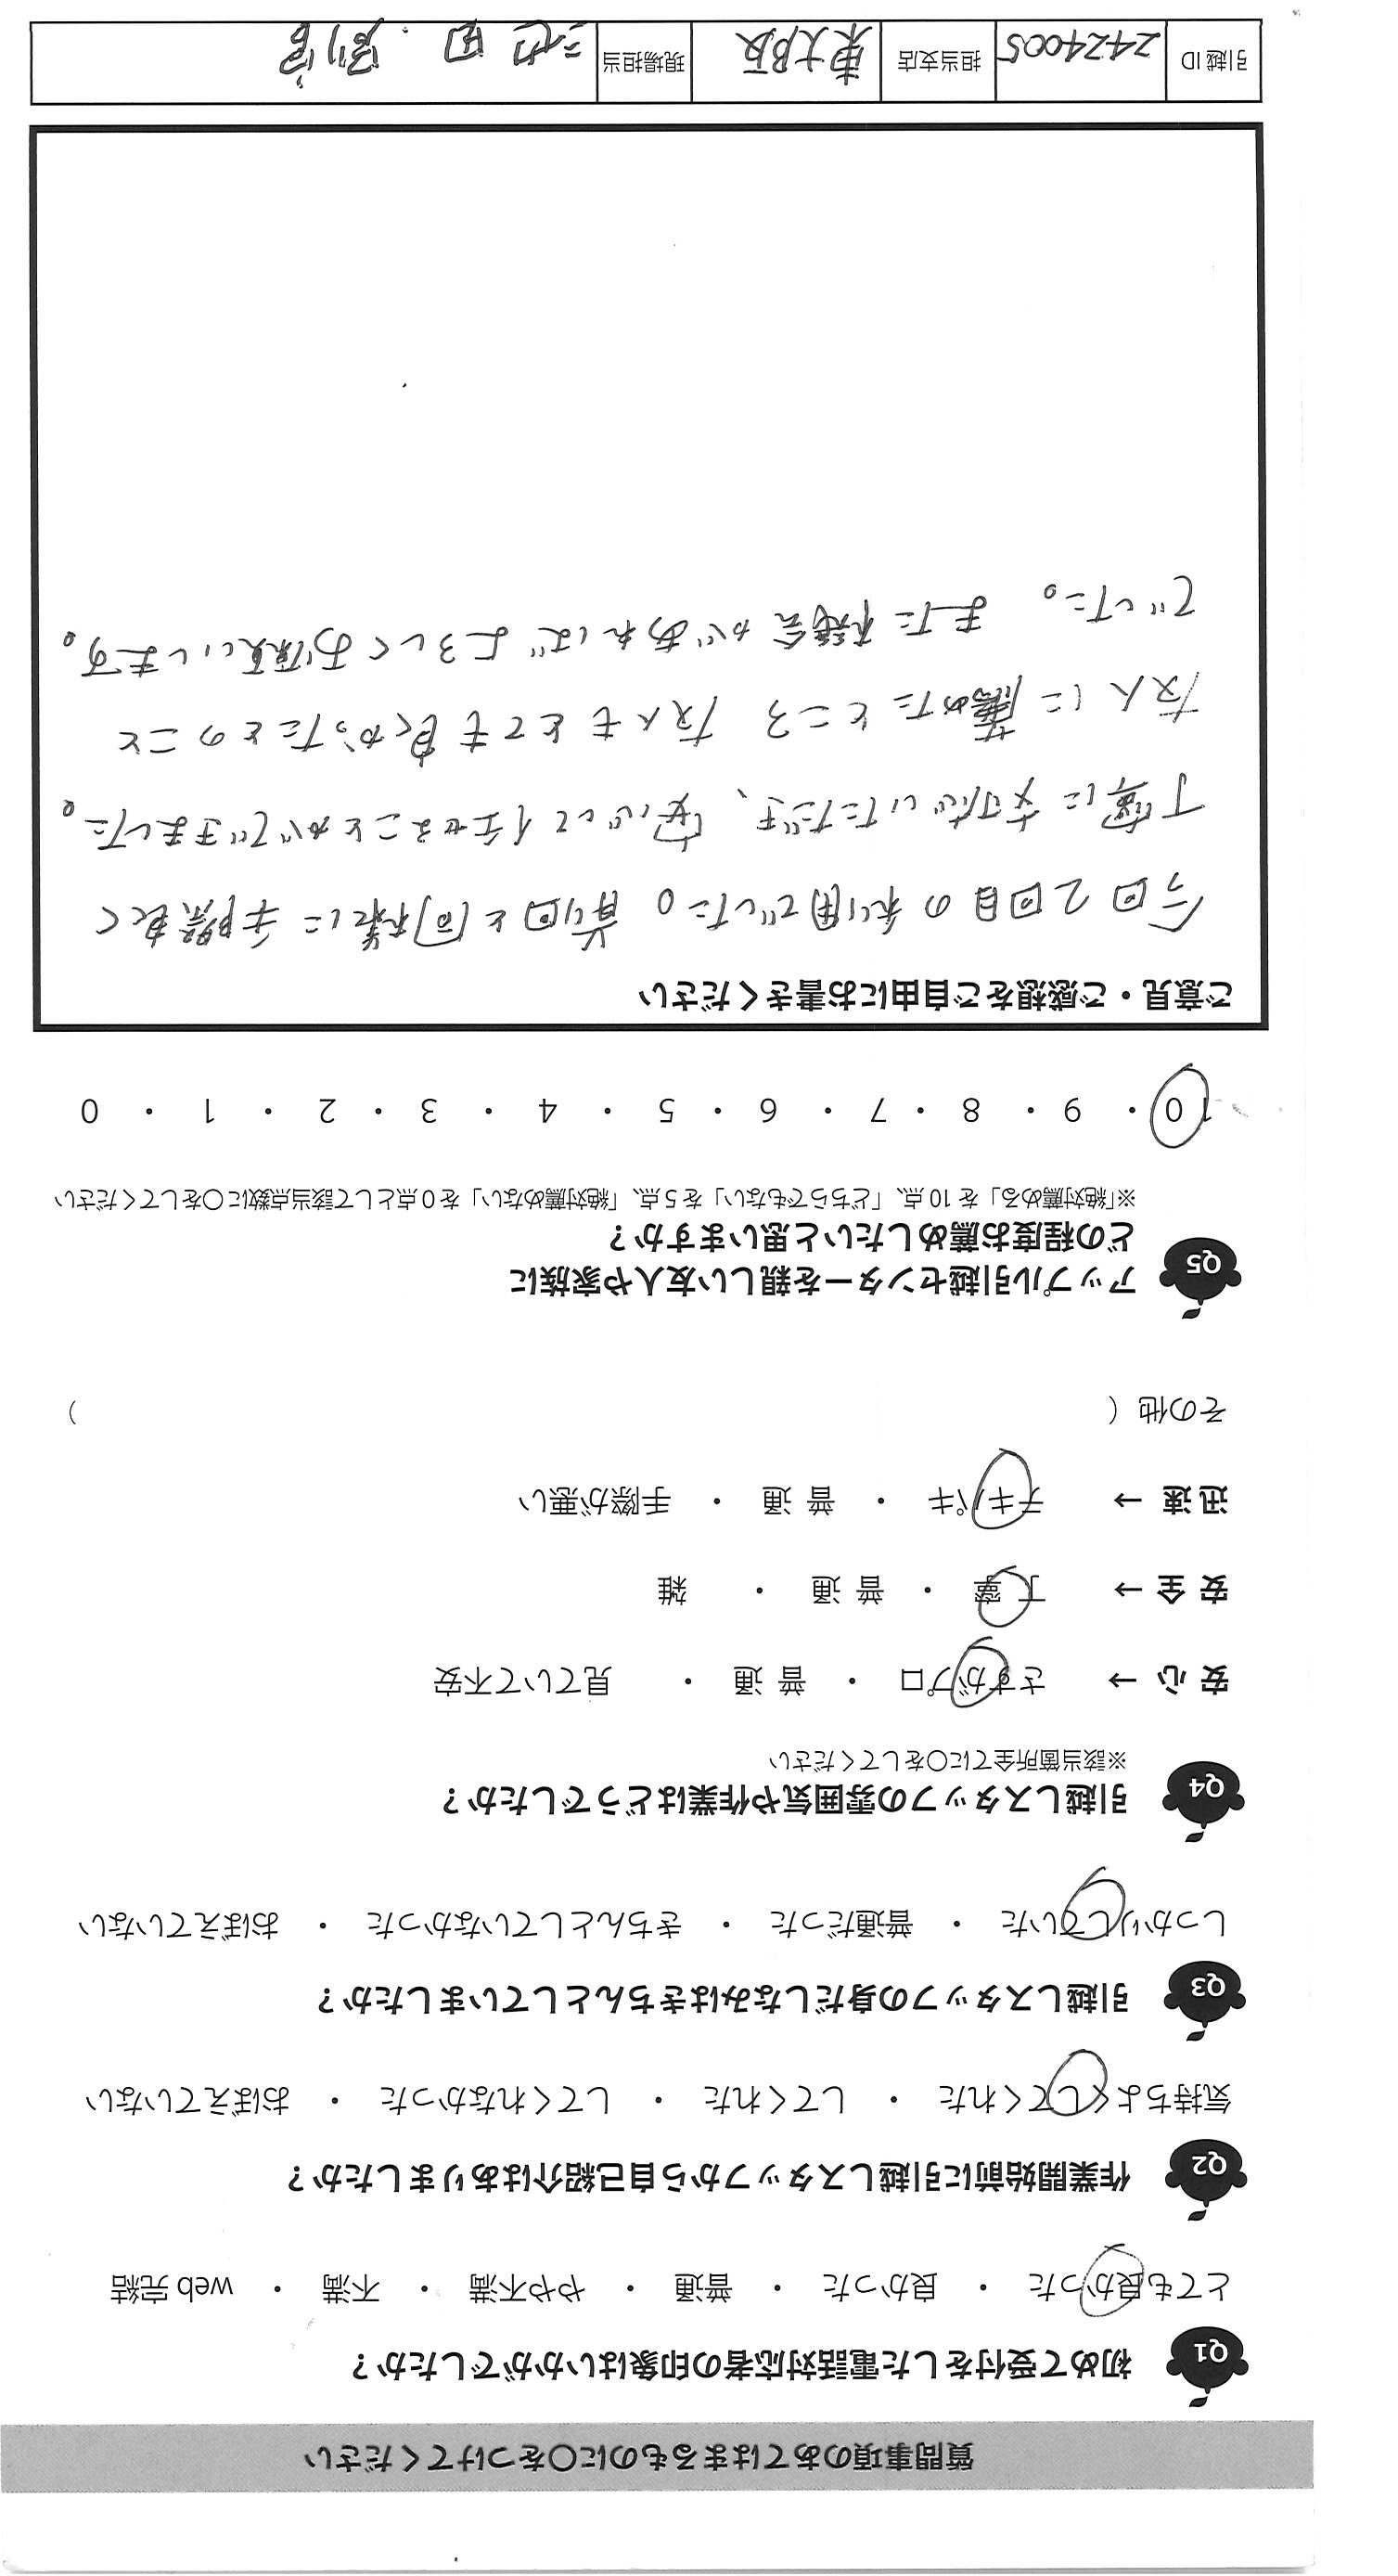 質問事項のあてはまるものに○をつけてください
Q1 初めて受付をした電話対応者の印象はいかがでしたか？
とても良かった ・ 良かった ・ 普通 ・ やや不満 ・ 不満 ・ web 完結
Q2 作業開始前に引越しスタッフから自己紹介はありましたか？
気持ちよくしてくれた ・ してくれた ・ してくれなかった ・ おぼえていない
Q3 引越しスタッフの身だしなみはきちんとしていましたか？
しっかりしていた ・ 普通だった ・ きちんとしていなかった ・ おぼえていない
Q4 引越しスタッフの雰囲気や作業はどうでしたか？
※該当箇所全てに○をしてください
安 心 → さすがプロ ・ 普 通 ・ 見ていて不安
安 全 → 丁 寧 ・ 普 通 ・ 雑
迅 速 → テキパキ ・ 普 通 ・ 手際が悪い
その他（ ）
Q5 アップル引越センターを親しい友人や家族に
どの程度お薦めしたいと思いますか？
※「絶対薦める」を 10 点、「どちらでもない」を 5 点、「絶対薦めない」を 0 点として該当点数に○をしてください
10 ・ 9 ・ 8 ・ 7 ・ 6 ・ 5 ・ 4 ・ 3 ・ 2 ・ 1 ・ 0
ご意見・ご感想をご自由にお書きください
今回2回目の利用でした。前回と同様に手際良く
丁寧に対応いただき、安心して任せることができました。
友人に薦めたところ 友人もとても良かったとのこと
でした。 また機会があればよろしくお願いします。
引越 ID 2424005 担当支店 東大阪 現場担当 池田.